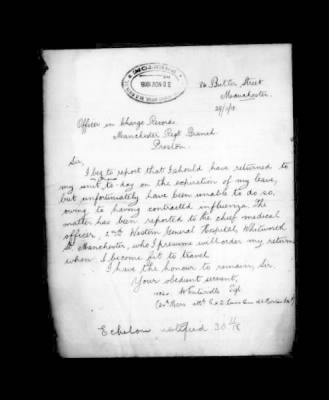 Butter Street
Manchester.
Officer in Charge Records
Manchester Regt Branch
Preston.
Sir,
I beg to report that I should have returned to
my unit to-day on the expiration of my leave,
but unfortunately have been unable to do so,
owing to having contracted influenza. The
matter has been reported to the chief medical
officer, 2nd Western General Hospital Whitworth
St. Manchester, who I presume will order my return
when I become fit to travel
I have the honour to remain, Sir.
Your obedient servant,
Echelon notified 30